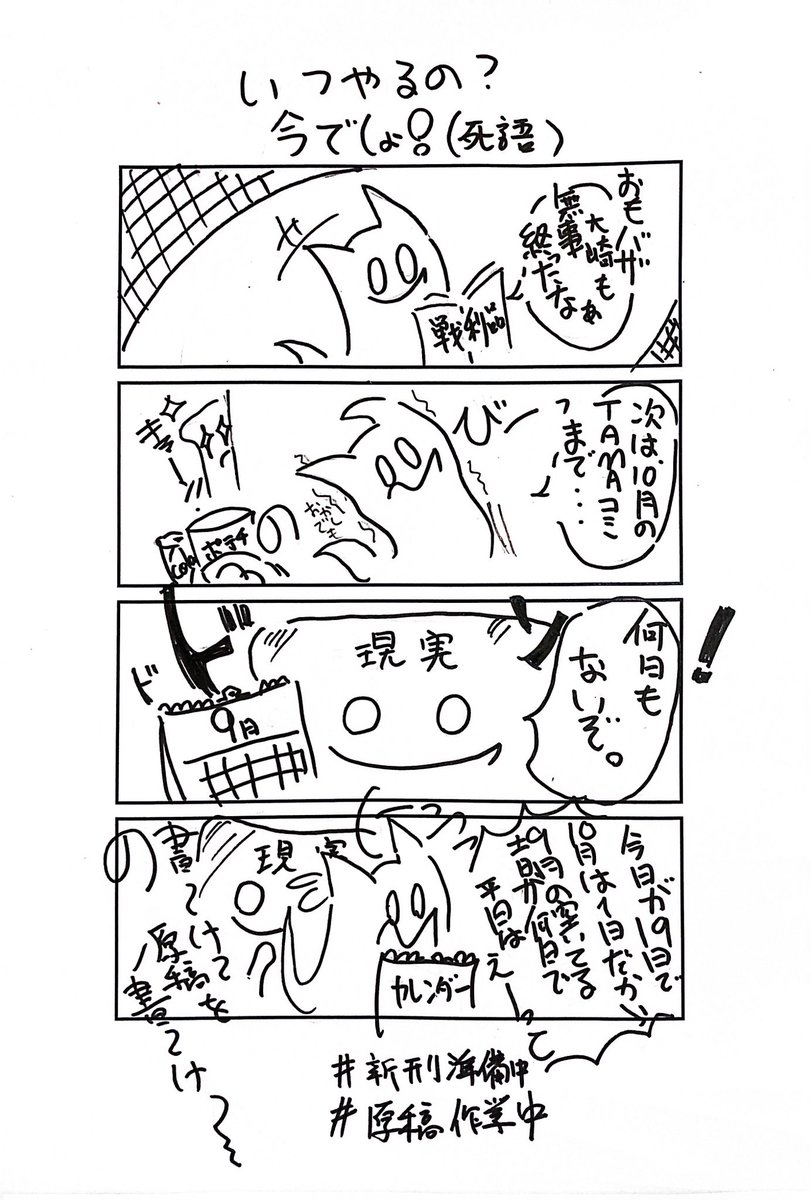 いつやるの?
今でしょ!(死語)
おもバザ
大崎も
無事
終ったなぁ
戦利品
次は、10月の
TAMAコミ
っまで...
び
おやし
でも
ポテチ
の
何日も
ないぞ。
!
現実
ドドン
9月
今日が19日で
10月は1日だから
9月の空いてる
土日が何日で
平日はえーって
現実
カレンダー
の
書てけ
原稿を
書てけ~
#新刊準備中
#原稿作業中